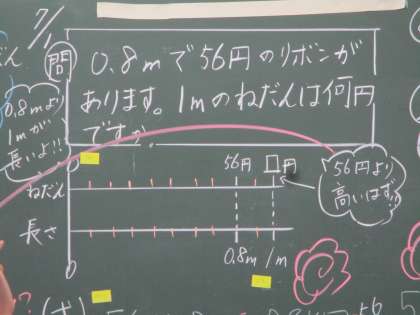 7/1
問
0.8mで56円のリボンが
あります。1mのねだんは何円
ですか。
0.8mより
1mが
長いよ!!
0
56円 □円
ねだん
56円より
高いはず!!
長さ
0
0.8m 1m